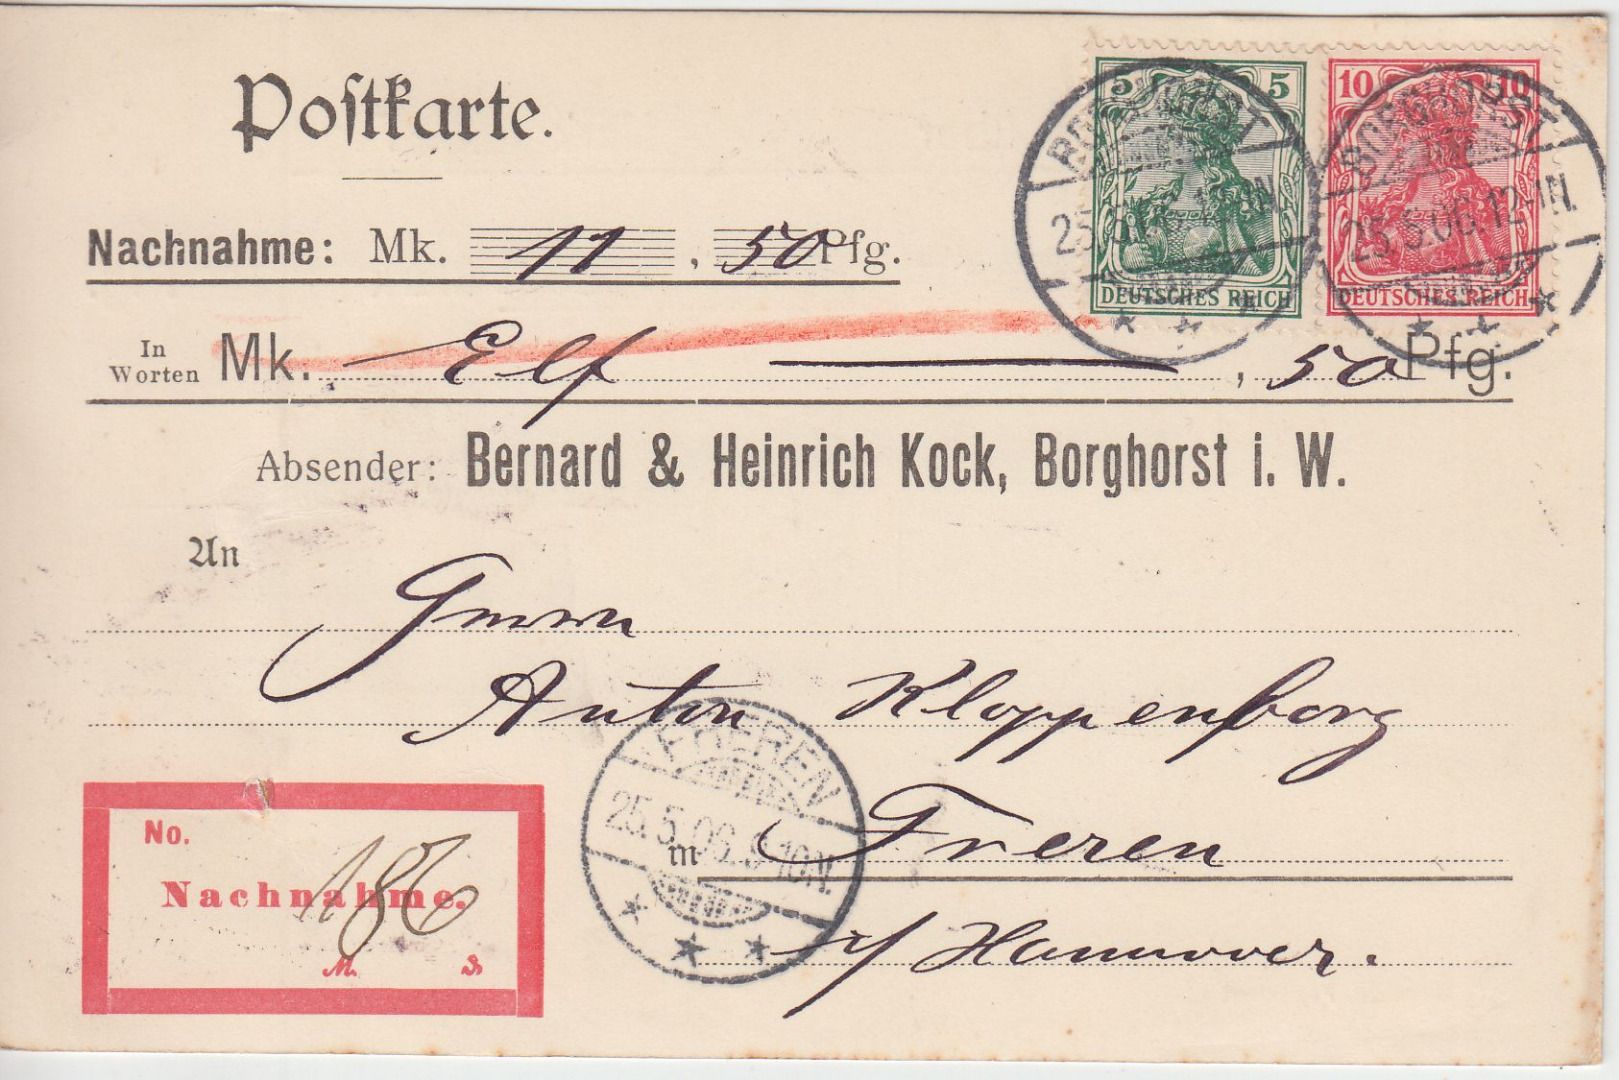 Postkarte.
5 5 10 10
BORGHORST BORGHORST
25.5.06.12-1N.
DEUTSCHES REICH DEUTSCHES REICH
Nachnahme: Mk. 11, 50 Pfg.
In Worten Mk. Elf, 50 Pfg.
Absender: Bernard & Heinrich Kock, Borghorst i. W.
An
Herrn
Anton Kloppenborg
FREREN
25.5.06. 9-10N.
in Freren
i/ Hannover.
No. 186
Nachnahme.
M. ₰